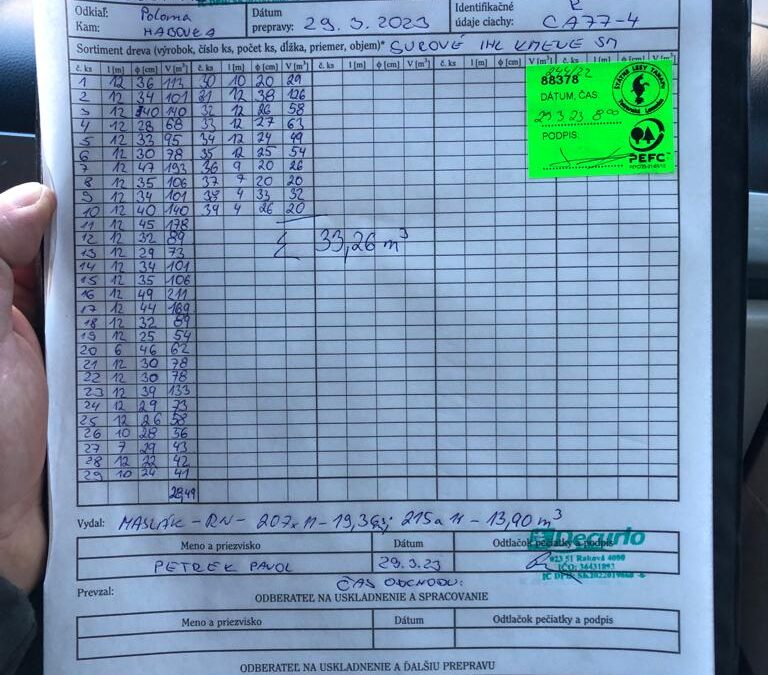 Odkiaľ: Poloma Dátum prepravy: 29.3.2023 Identifikačné údaje ciachy: CA77-4
Kam: HABOVKA
Sortiment dreva (výrobok, číslo ks, počet ks, dĺžka, priemer, objem)* SUROVÉ IHL KMENE SM
č. ks l [m] ϕ [cm] V [m³] č. ks l [m] ϕ [cm] V [m³] č. ks l [m] ϕ [cm] V [m³] č. ks l [m] ϕ [cm] V [m³] č. ks
1 12 36 113 30 10 20 29
2 12 34 101 31 12 38 126
3 12 40 140 32 12 26 58
4 12 28 68 33 12 27 63
5 12 33 95 34 12 24 49
6 12 30 78 35 12 25 54
7 12 47 193 36 9 20 26
8 12 35 106 37 7 20 20
9 12 34 101 38 4 33 32
10 12 40 140 39 4 26 20
11 12 45 178
12 12 32 89
13 12 29 73
14 12 34 101
15 12 35 106
16 12 49 211
17 12 44 169
18 12 32 89
19 12 25 54
20 6 46 62
21 12 30 78
22 12 30 78
23 12 39 133
24 12 29 73
25 12 26 58
26 10 28 56
27 7 29 43
28 12 22 42
29 10 24 41
28,49
Σ 33,26 m³
ŠTÁTNE LESY TANAPU
88378
DÁTUM, ČAS:
29.3.23 800
PODPIS:
PEFC
Vydal: MASLIAK - RN - 207 11 - 19,36; 215a 11 - 13,90 m³
Meno a priezvisko Dátum Odtlačok pečiatky a podpis
PETREK PAVOL 29.3.23
023 51 Raková 4090
ČAS ODCHODU:
Prevzal:
ODBERATEĽ NA USKLADNENIE A SPRACOVANIE
Meno a priezvisko Dátum Odtlačok pečiatky a podpis
ODBERATEĽ NA USKLADNENIE A ĎALŠIU PREPRAVU